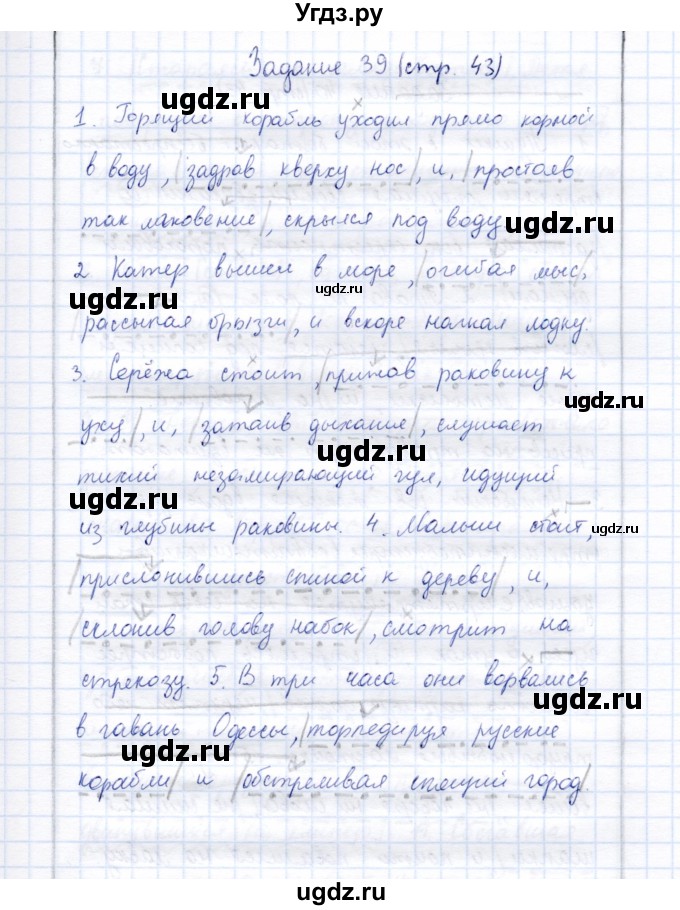 Угдз.ру
Задание 39 (стр. 43)
1. Горящий корабль уходил прямо кормой
в воду, задрав кверху нос, и, простояв
так мгновение, скрылся под воду
2 Катер вышел в море, огибая мыс,
рассыпая брызги, и вскоре нагнал лодку.
3. Серёжа стоит, прижав раковину к
уху, и, затаив дыхание, слушает
тихий незамирающий гул, идущий
из глубины раковины. 4. Малыш стоит,
прислонившись спиной к дереву, и,
склонив голову набок, смотрит на
стрекозу. 5. В три часа они ворвались
в гавань Одессы, торпедируя русские
корабли и обстреливая спящий город.
ugdz.ru
ugdz.ru
ugdz.ru
ugdz.ru
ugdz.ru
ugdz.ru
ugdz.ru
ugdz.ru
ugdz.ru
ugdz.ru
ugdz.ru
ugdz.ru
ugdz.ru
ugdz.ru